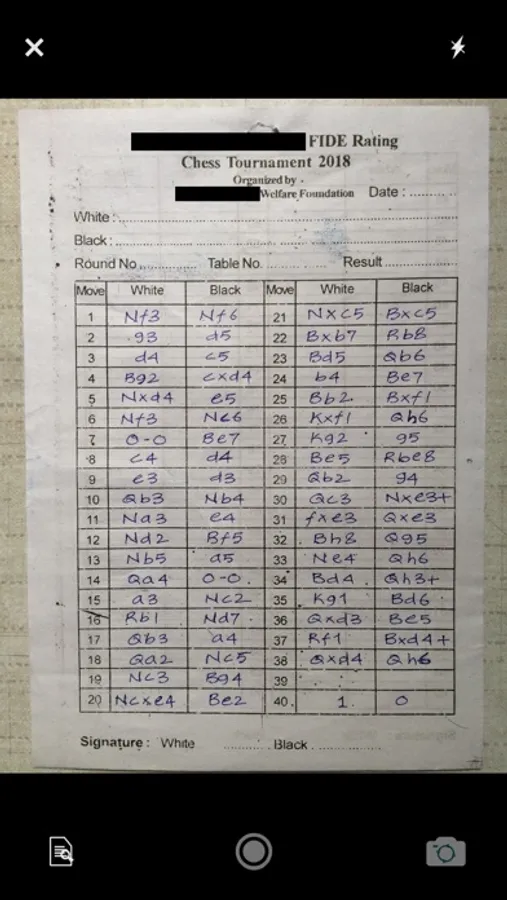 FIDE Rating
Chess Tournament 2018
Organized by
Welfare Foundation Date :
White :
Black :
Round No. Table No. Result
Move White Black Move White Black
1 Nf3 Nf6 21 Nxc5 Bxc5
2 g3 d5 22 Bxb7 Rb8
3 d4 c5 23 Bd5 Qb6
4 Bg2 cxd4 24 b4 Be7
5 Nxd4 e5 25 Bb2 Bxf1
6 Nf3 Nc6 26 Kxf1 Qh6
7 0-0 Be7 27 Kg2 g5
8 c4 d4 28 Be5 Rbe8
9 e3 d3 29 Qb2 g4
10 Qb3 Nb4 30 Qc3 Nxe3+
11 Na3 e4 31 fxe3 Qxe3
12 Nd2 Bf5 32 Bh8 Qg5
13 Nb5 a5 33 Ne4 Qh6
14 Qa4 0-0 34 Bd4 Qh3+
15 a3 Nc2 35 Kg1 Bd6
16 Rb1 Nd7 36 Qxd3 Be5
17 Qb3 a4 37 Rf1 Bxd4+
18 Qa2 Nc5 38 Qxd4 Qh6
19 Nc3 Bg4 39
20 Ncxe4 Be2 40. 1 0
Signature : White Black